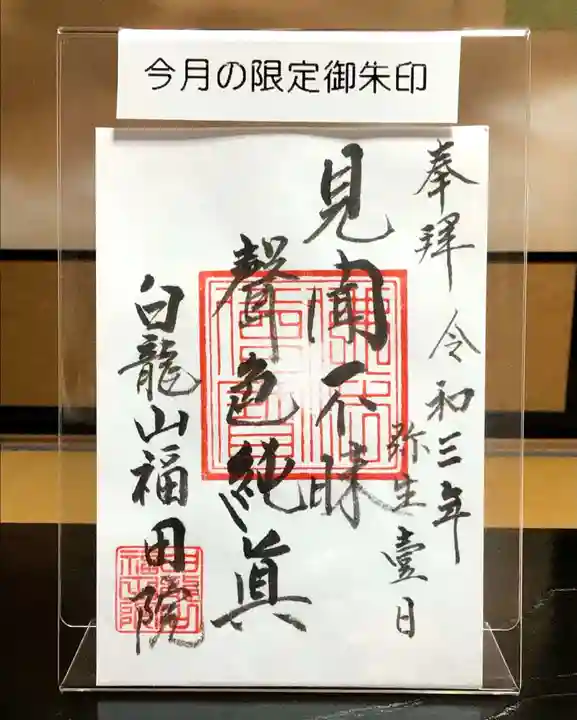 今月の限定御朱印
奉拜 令和三年
弥生壹日
見聞不昧
聲色純眞
白龍山福田院